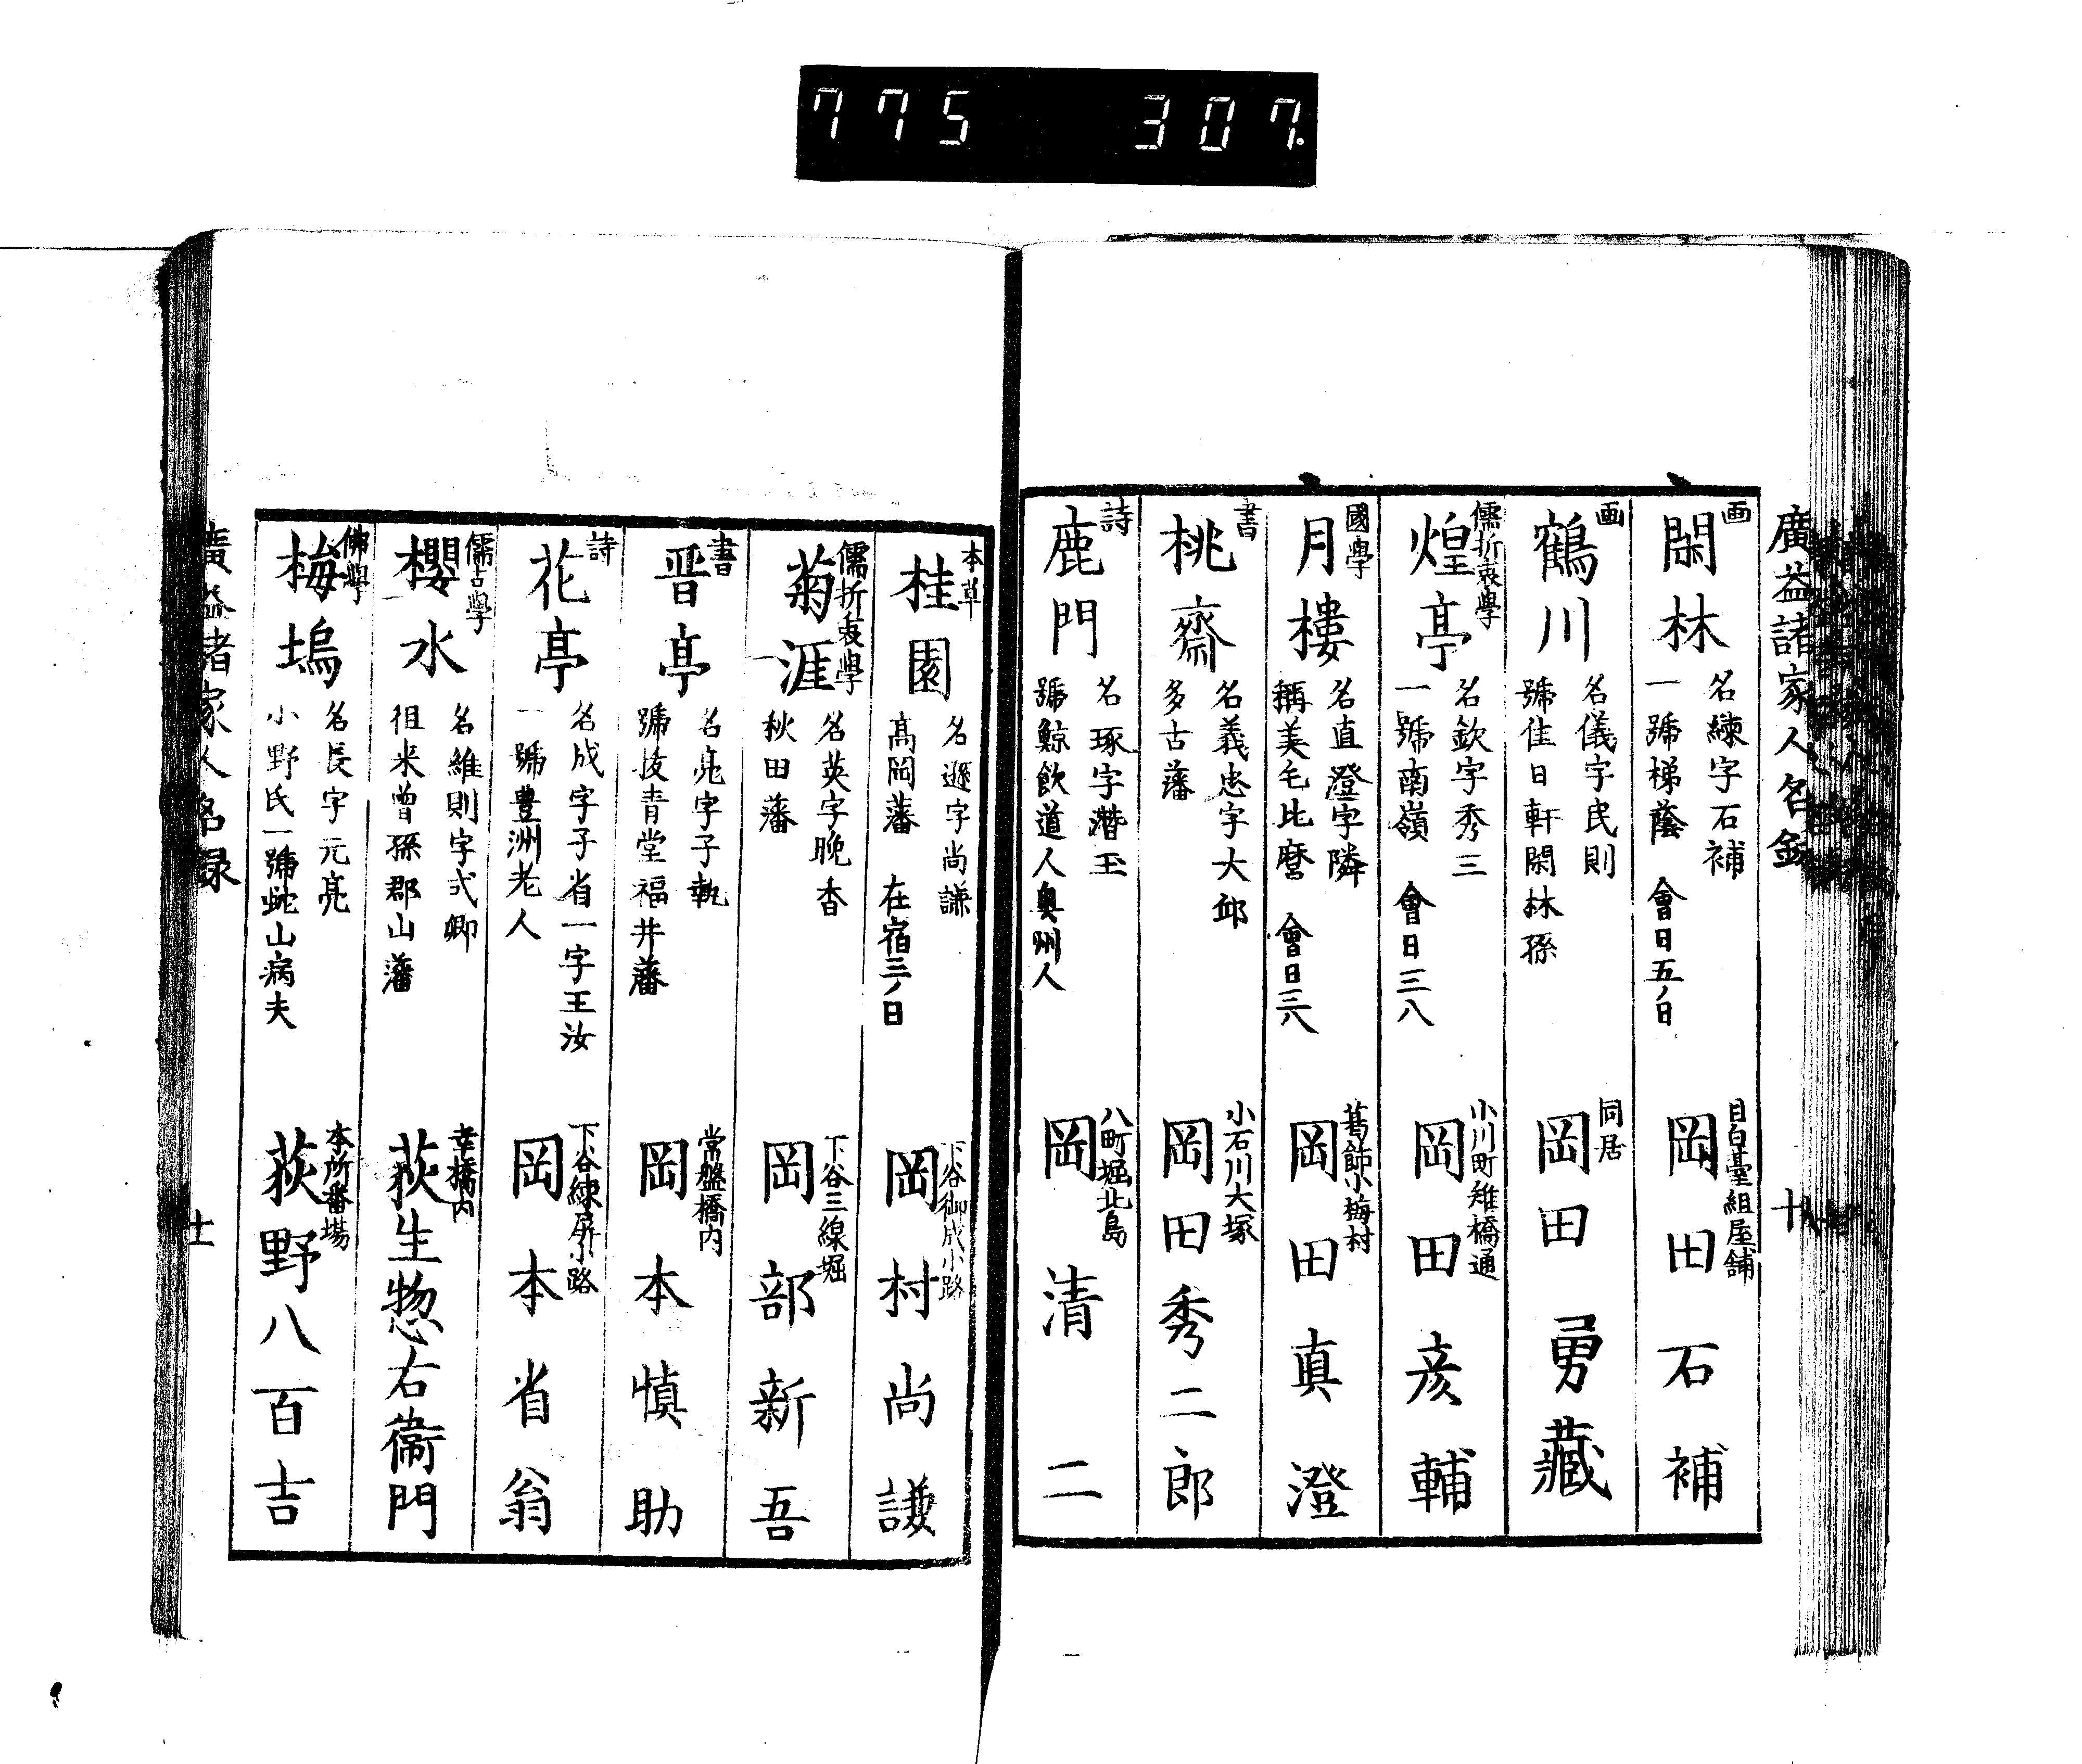 775 307.
廣益諸家人名録
画
閑林
名練字石補
一號梯蔭 會日五ノ日
目白臺組屋舗
岡田石補
画
鶴川
名儀字民則
號佳日軒閑林孫
同居
岡田勇藏
儒折衷學
煌亭
名欽字秀三
一號南嶺 會日三八
小川町雉橋通
岡田彦輔
國學
月樓
名直澄字隣
稱美毛比麿 會日三八
葛飾小梅村
岡田真澄
書
桃齋
名義忠字大邱
多古藩
小石川大塚
岡田秀二郎
詩
鹿門
名琢字潛玉
號鯨飲道人奥州人
八町堀北島
岡清二
本草
桂園
名遜字尚謙
髙岡藩 在宿三ノ日
下谷御成小路
岡村尚謙
儒折衷學
菊涯
名英字晩香
秋田藩
下谷三線堀
岡部新吾
書
晋亭
名亮字子執
號後青堂福井藩
常盤橋内
岡本慎助
詩
花亭
名成字子省一字王汝
一號豊洲老人
下谷練屏小路
岡本省翁
儒古學
櫻水
名維則字式卿
徂来曾孫郡山藩
幸橋内
荻生惣右衞門
佛學
梅塢
名長字元亮
小野氏一號蛇山病夫
本所番塲
荻野八百吉
廣益諸家人名録